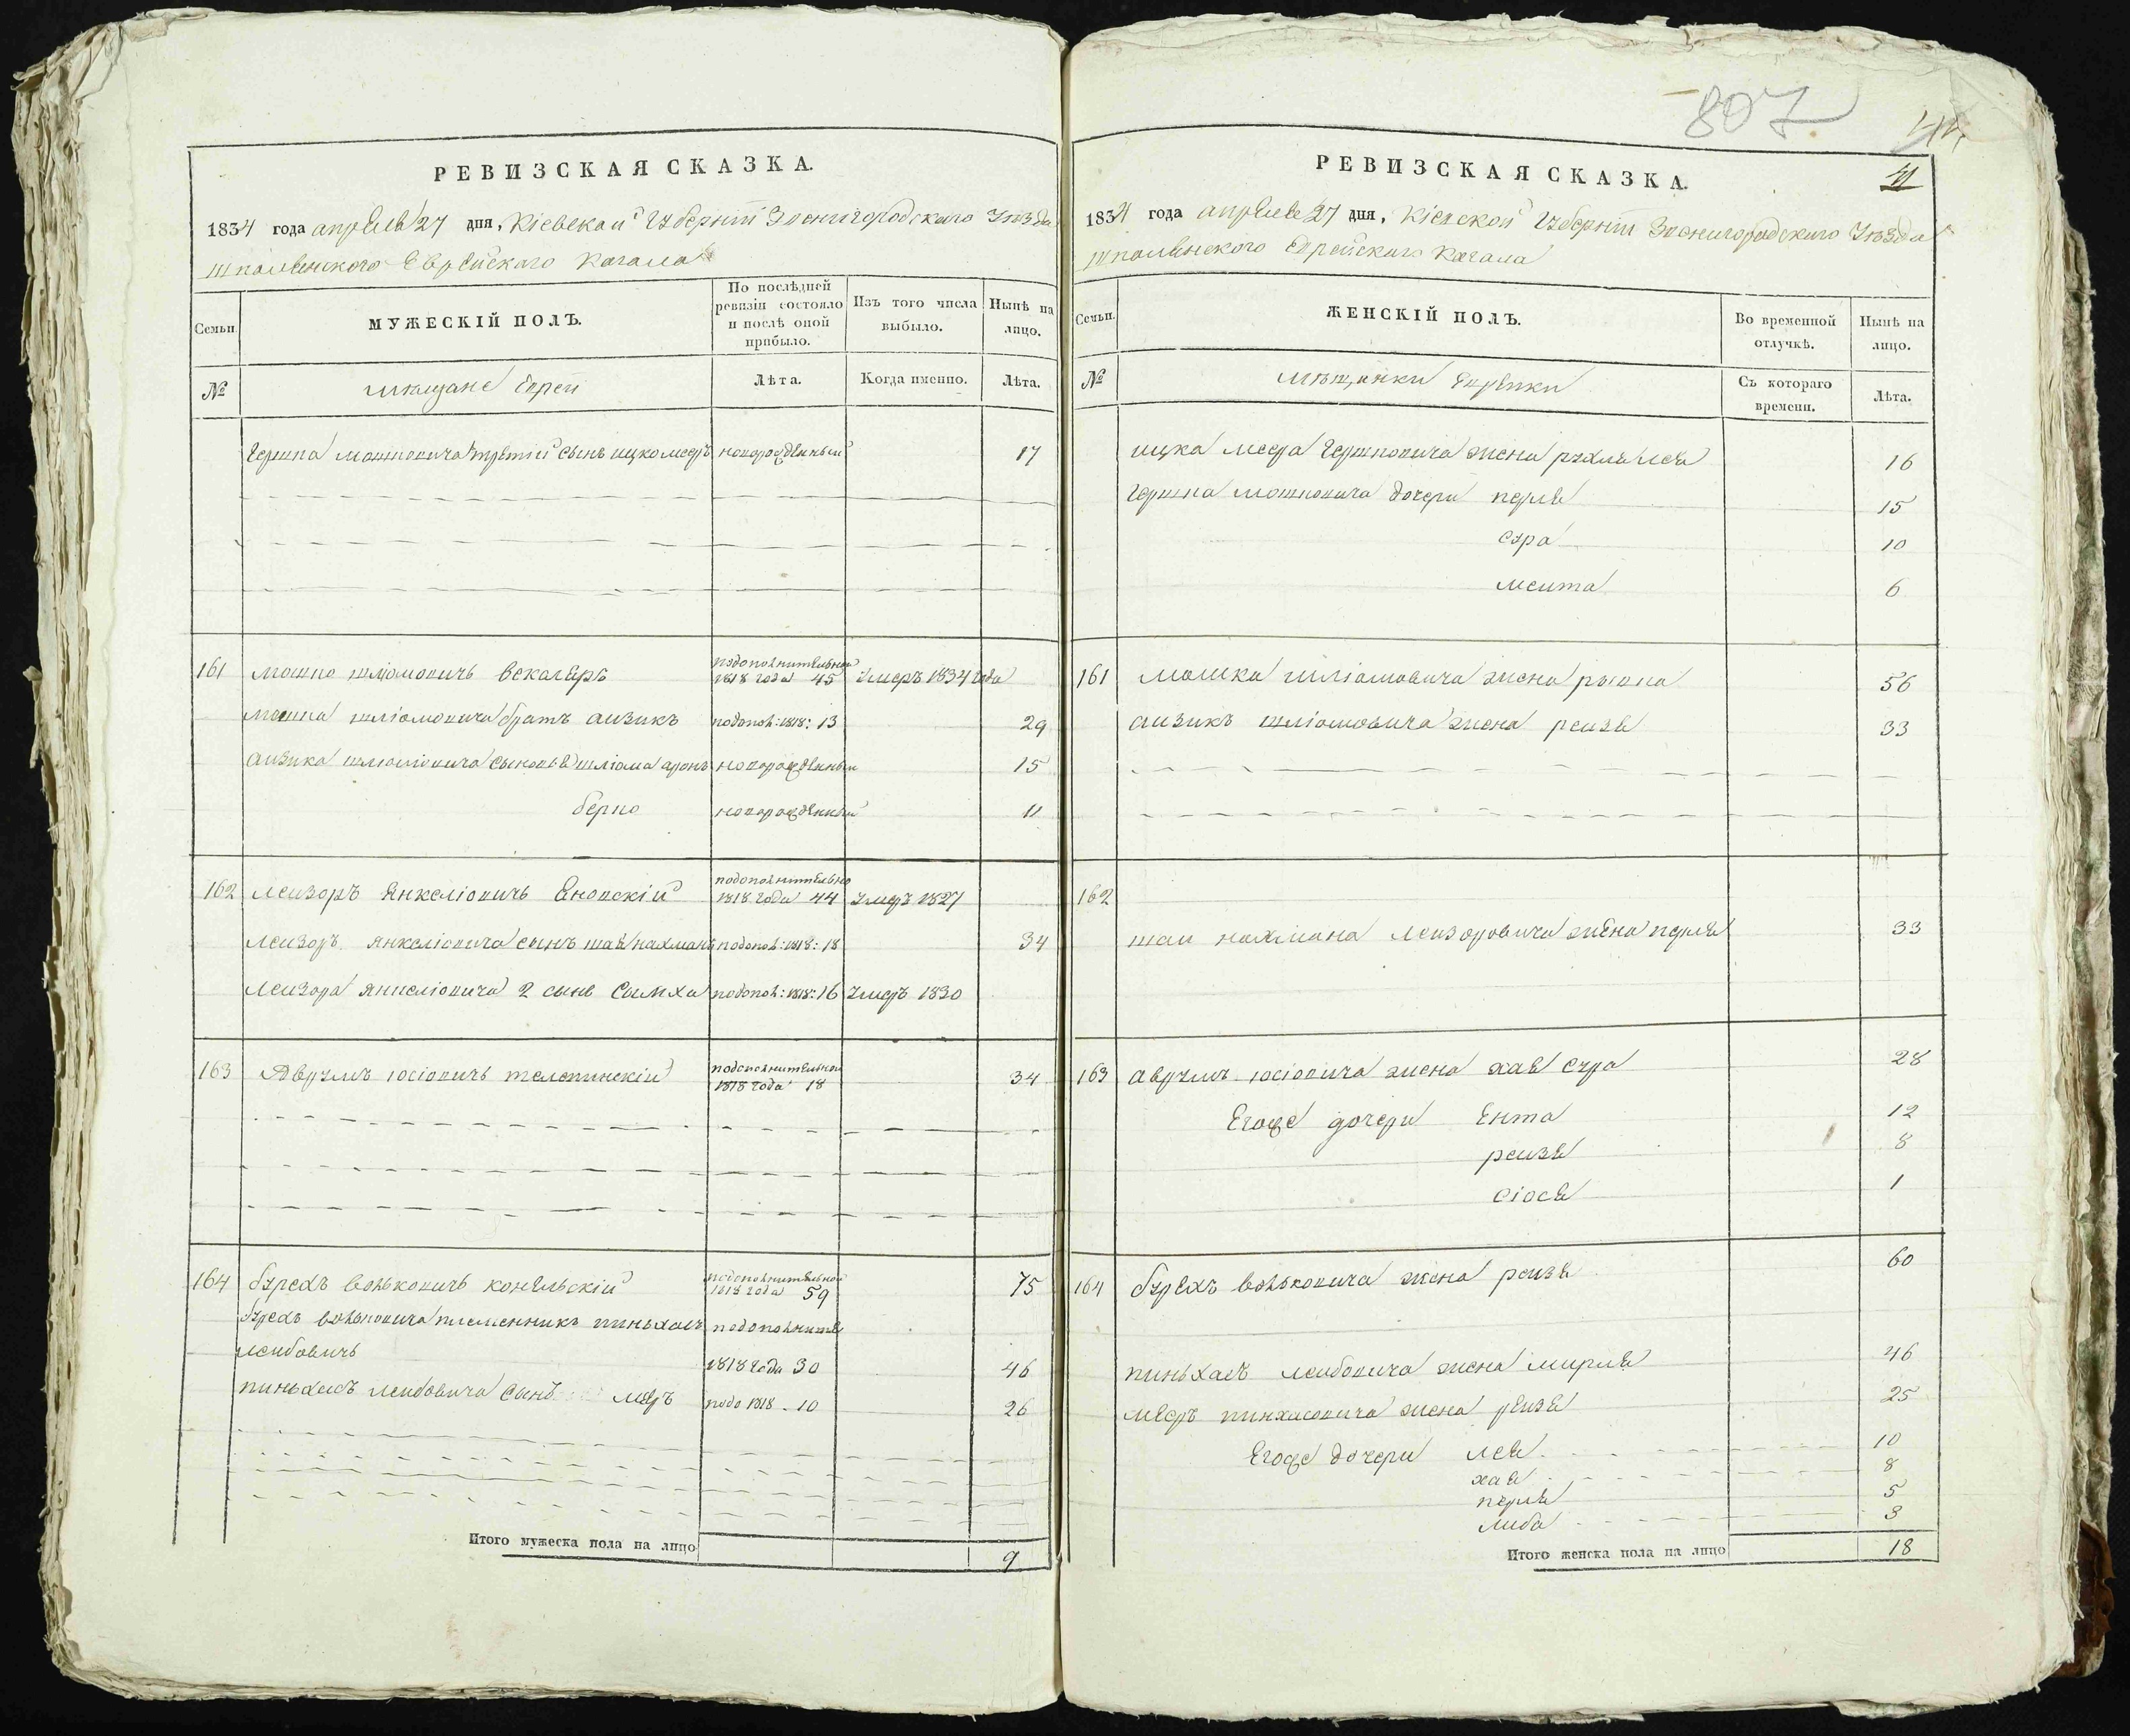 РЕВИЗСКАЯ СКАЗКА.
1834 года апреля 27 дня, Кіевской Губерніи Звенигородскаго Уѣзда
шполянского Еврейскаго Кагала
Семьи.
МУЖЕСКІЙ ПОЛЪ.
По послѣдней ревизіи состояло и послѣ оной прибыло.
Изъ того числа выбыло.
Нынѣ на лицо.
№
мещане Евреи
Лѣта.
Когда именно.
Лѣта.
Гершка мошковича третий сынъ ицко мееръ новорожденный 17
161 мошко шліомовичъ векслеръ подополнительной 1818 года 45 умеръ 1834 года
мошка шліомовича братъ аизикъ подопол: 1818: 13 29
аизика шліомовича сыновья шліома аронъ новорожденный 15
берко новорожденный 11
162 леизоръ янкеліовичъ подополнительно 1818 года 44 умеръ 1827
леизоръ янкеліовича сынъ шая нахманъ подопол: 1818: 18 34
леизора янкеліовича 2 сынъ Сымха подопол: 1818: 16 умеръ 1830
163 Аврумъ іосіовичъ телепинскій подополнительной 1818 года 18 34
164 бурехъ волькович конельскій подополнительной 1818 года 59 75
бурехъ вольковича племенникъ пиньхасъ подополните
леибовичъ 1818 года 30 46
пиньхасъ леибовича сынъ меръ подо 1818 - 10 26
Итого мужеска пола на лицо 9
807
41
РЕВИЗСКАЯ СКАЗКА.
1834 года апреля 27 дня, Кіевской Губерніи Звенигородскаго Уѣзда
шполянского Еврейскаго Кагала
Семьи.
ЖЕНСКІЙ ПОЛЪ.
Во временной отлучкѣ.
Нынѣ на лицо.
№
мѣщанки Еврейки
Съ котораго времени.
Лѣта.
ицка меера Гершковича жена рухля лея 16
Гершка мошковича дочери перля 15
сура 10
меита 6
161 мошка шліомовича жена рывка 56
аизикъ шліомовича жена реизя 33
162
шаи нахмана леизоровича жена перля 33
163 аврумъ іосіовича жена хая сура 28
Егоже дочери Ента 12
реизя 8
сіося 1
164 бурехъ вольковича жена реизя 60
пиньхасъ леибовича жена мирля 46
меръ пинхасовича жена реизя 25
Егоже дочери лея 10
хая 8
перля 5
либа 3
Итого женска пола на лицо 18